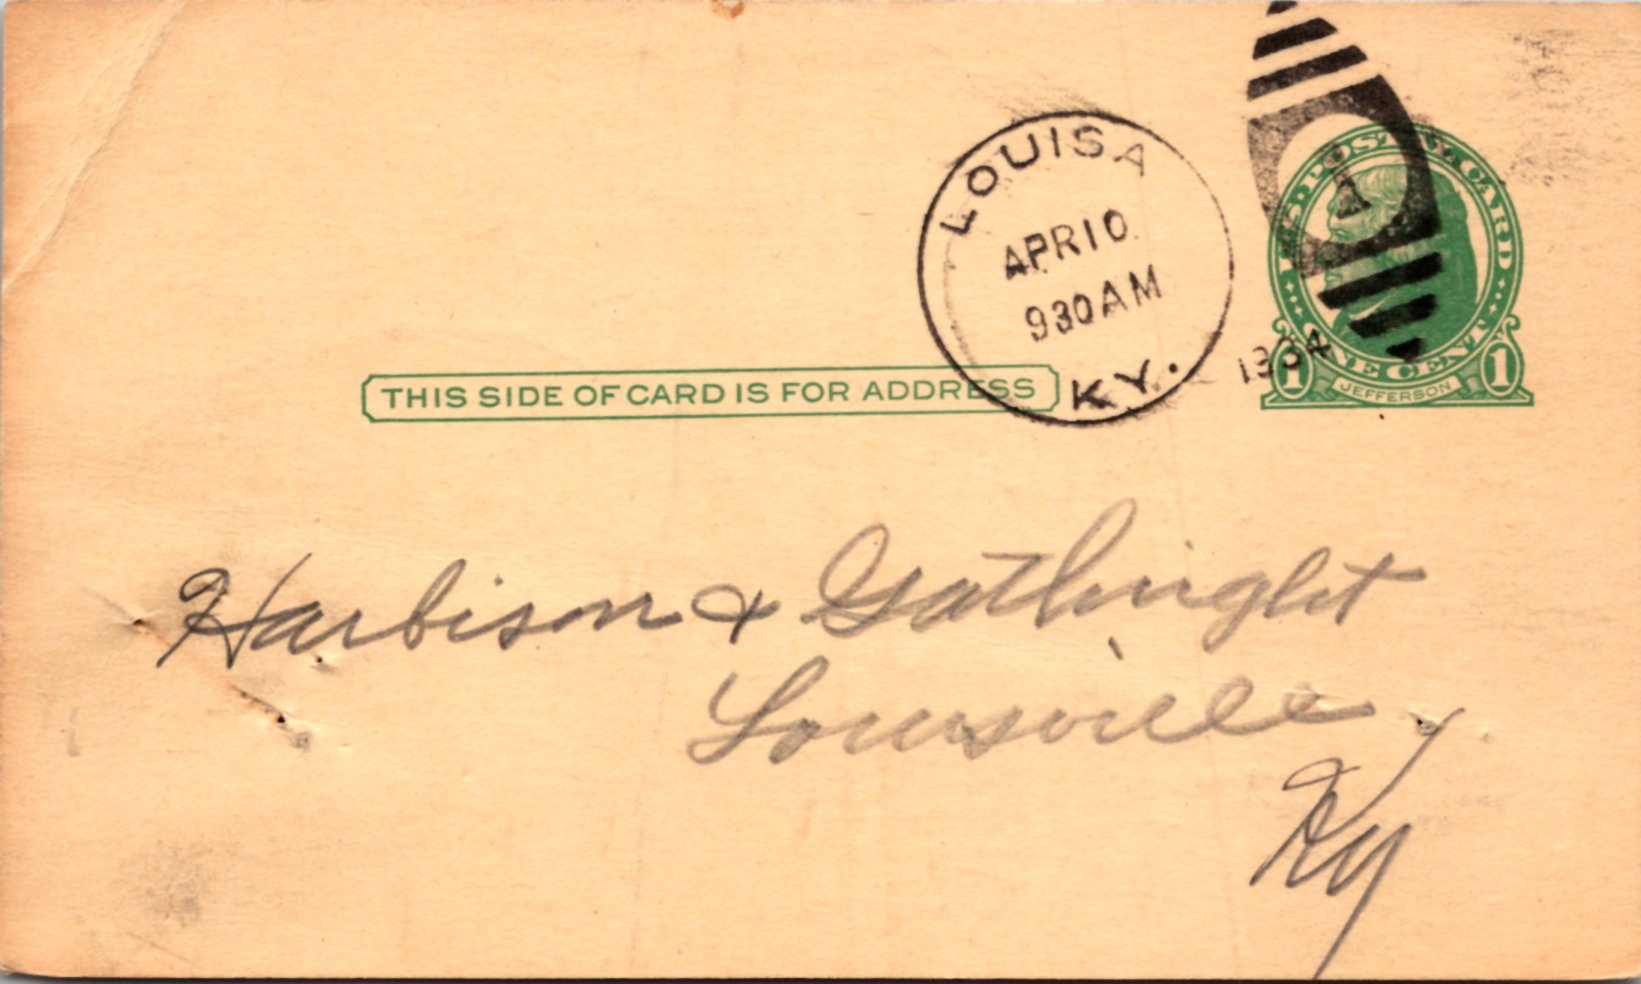 LOUISA
APR 10
930 AM
KY.
1934
U.S. POSTAL CARD
ONE CENT
1 JEFFERSON 1
THIS SIDE OF CARD IS FOR ADDRESS
Harbison & Gathright
Louisville
Ky